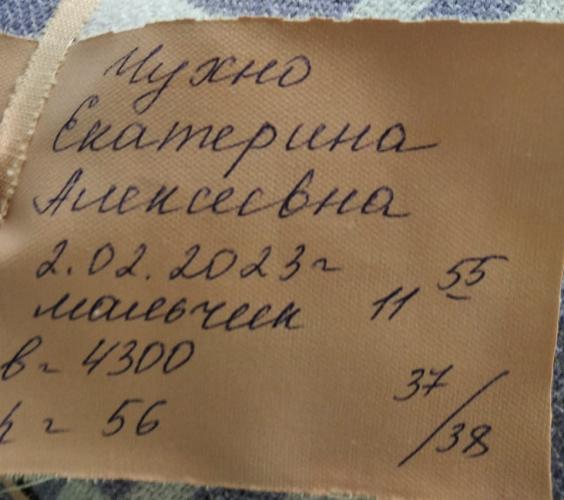 Чухно
Екатерина
Алексеевна
2.02.2023г
мальчик 11 55
в - 4300
р - 56 37/38